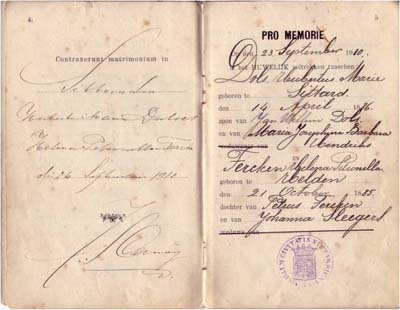 4.
Contraxerunt matrimonium in
Sittard
Helena Petronella
die 24 September 1910
5
PRO MEMORIE
Op den 23 September 1910,
is het HUWELIJK voltrokken tusschen
Dols Hubertus Marie
geboren te Sittard
den 14 April 1886
zoon van Jan Willem Dols
en van Maria Josephina Barbara
Hendriks
en
Fercken Helena Petronella
geboren te Helden
den 21 October 1885
dochter van Petrus Fercken
en van Johanna Sleegers